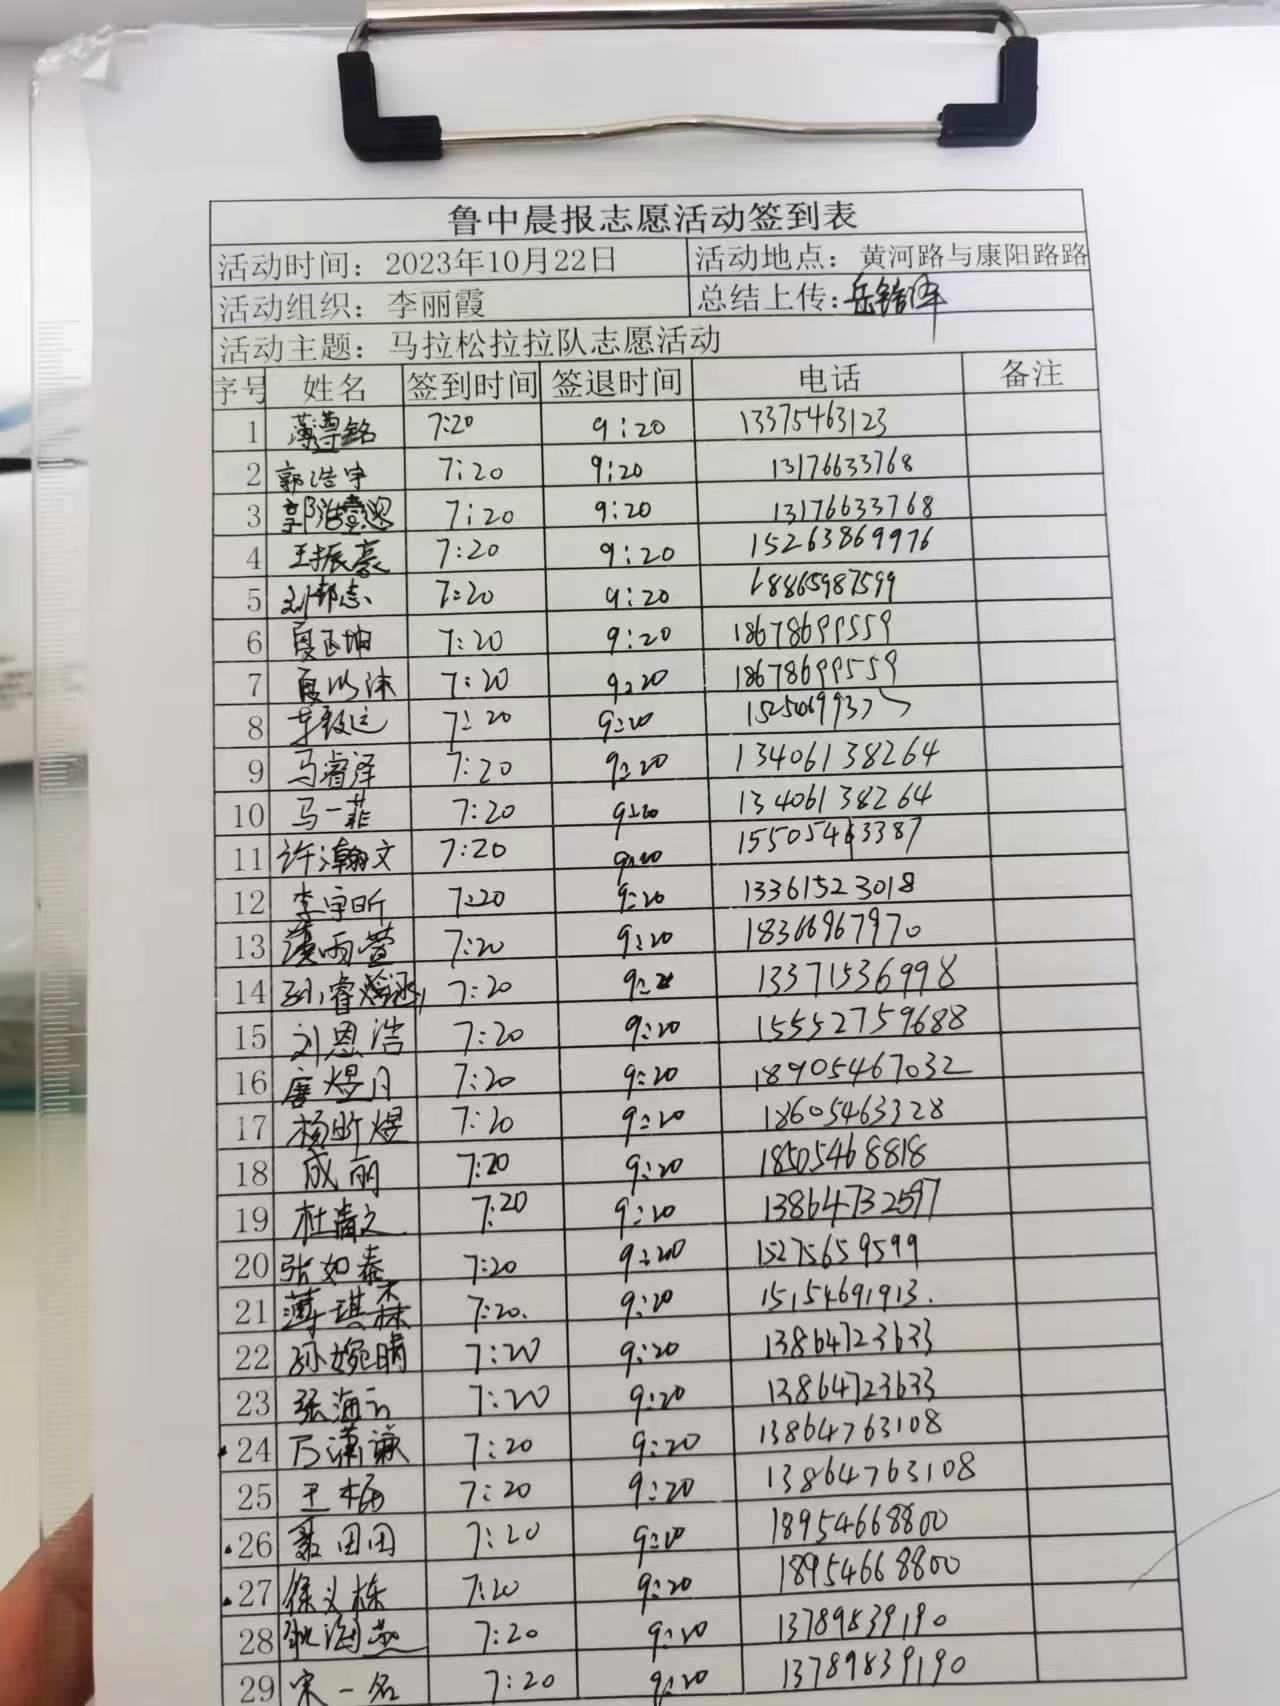 鲁中晨报志愿活动签到表
活动时间：2023年10月22日 活动地点：黄河路与康阳路路
活动组织：李丽霞 总结上传：岳
活动主题：马拉松拉拉队志愿活动
序号 姓名 签到时间 签退时间 电话 备注
1 薄尊铭 7:20 9:20 13375463123
2 郭浩宇 7:20 9:20 13176633768
3 郭浩 7:20 9:20 13176633768
4 王振豪 7:20 9:20 15263869976
5 刘邦志 7:20 9:20 18865987599
6 夏正坤 7:20 9:20 18678699559
7 夏以沫 7:20 9:20 18678699559
8 7:20 9:20
9 马睿泽 7:20 9:20 13406138264
10 马一菲 7:20 9:20 13406138264
11 许瀚文 7:20 9:20 15505463387
12 李宇昕 7:20 9:20 13361523018
13 雨萱 7:20 9:20 18366967970
14 孙睿 7:20 9:20 13371536998
15 刘恩浩 7:20 9:20 15552759688
16 唐煜月 7:20 9:20 18905467032
17 杨昕煜 7:20 9:20 18605463328
18 成丽 7:20 9:20 18505468818
19 杜清文 7:20 9:20 13864732597
20 张如泰 7:20 9:20 15275659599
21 薄琪森 7:20. 9:20 15154691913.
22 孙婉晴 7:20 9:20 13864723633
23 张海云 7:20 9:20 13864723633
24 潇 7:20 9:20 13864763108
25 王梅 7:20 9:20 13864763108
26 聂田田 7:20 9:20 18954668800
27 徐义栋 7:20 9:20 18954668800
28 海燕 7:20 9:20 13789839190
29 宋一名 7:20 9:20 13789839190